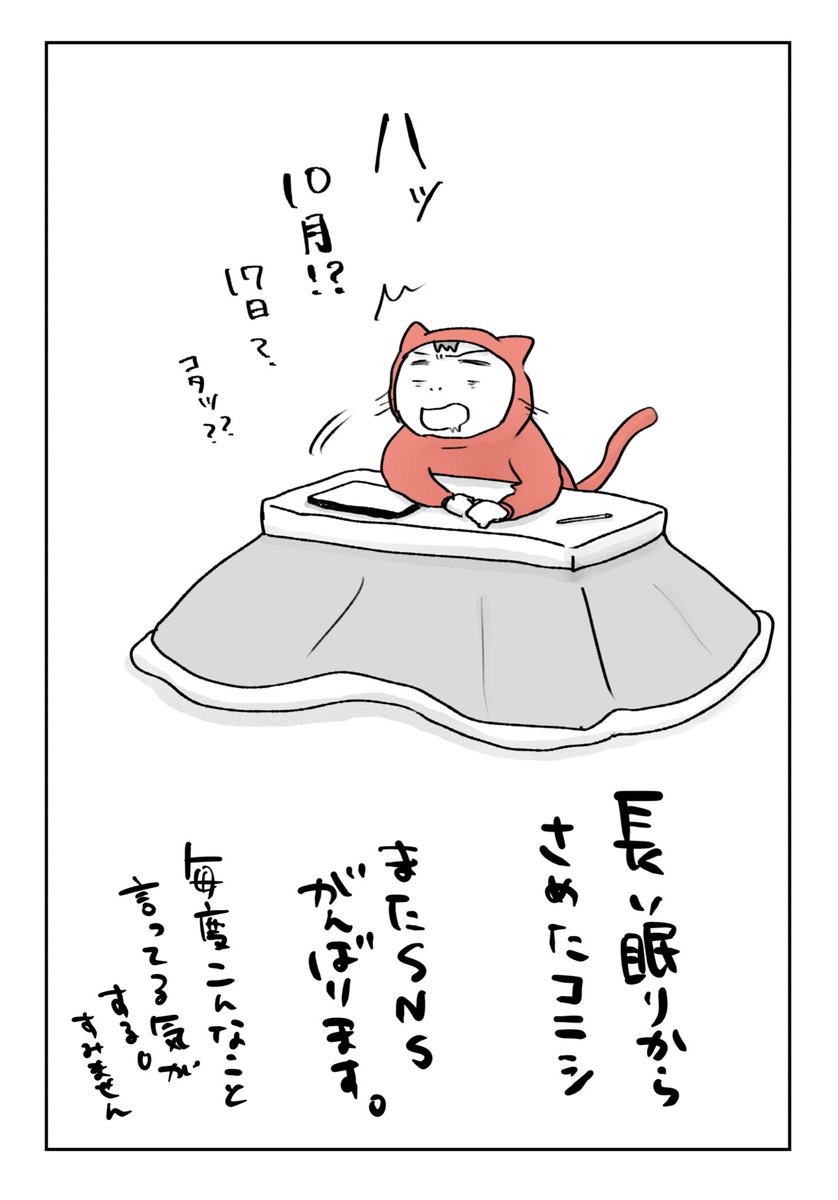 ハッ
10月!?
17日?
コタツ??
長い眠りから
さめたコニシ
またSNS
がんばります。
毎度こんなこと
言ってる気が
する。
すみません